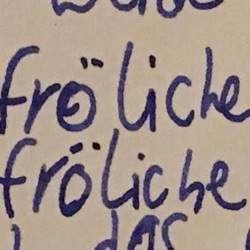 fröliche
fröliche
das